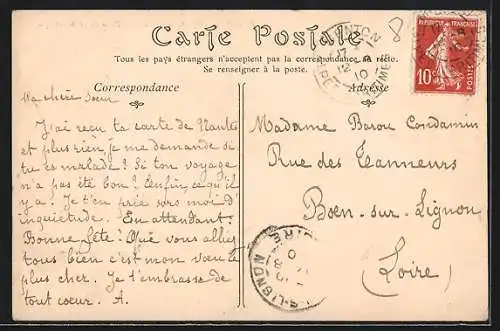 Carte Postale
Tous les pays étrangers n'acceptent pas la correspondance au recto.
Se renseigner à la poste.
Correspondance
Adresse
8
REPUBLIQUE FRANÇAISE
10
POSTES
Ma chère soeur
J'ai reçu ta carte de Nantes
et plus rien je me demande si
tu es malade? Si ton voyage
n'a pas été bon? Enfin ce qu'il
y a? Je t'en prie sors moi d'
inquiétude. En attendant:
Bonne fête! Que vous alliez
tous bien c'est mon vœu le
plus cher. Je t'embrasse de
tout coeur. A.
Madame Barou Condamin
Rue des Tanneurs
Boën-sur-Lignon
(Loire)